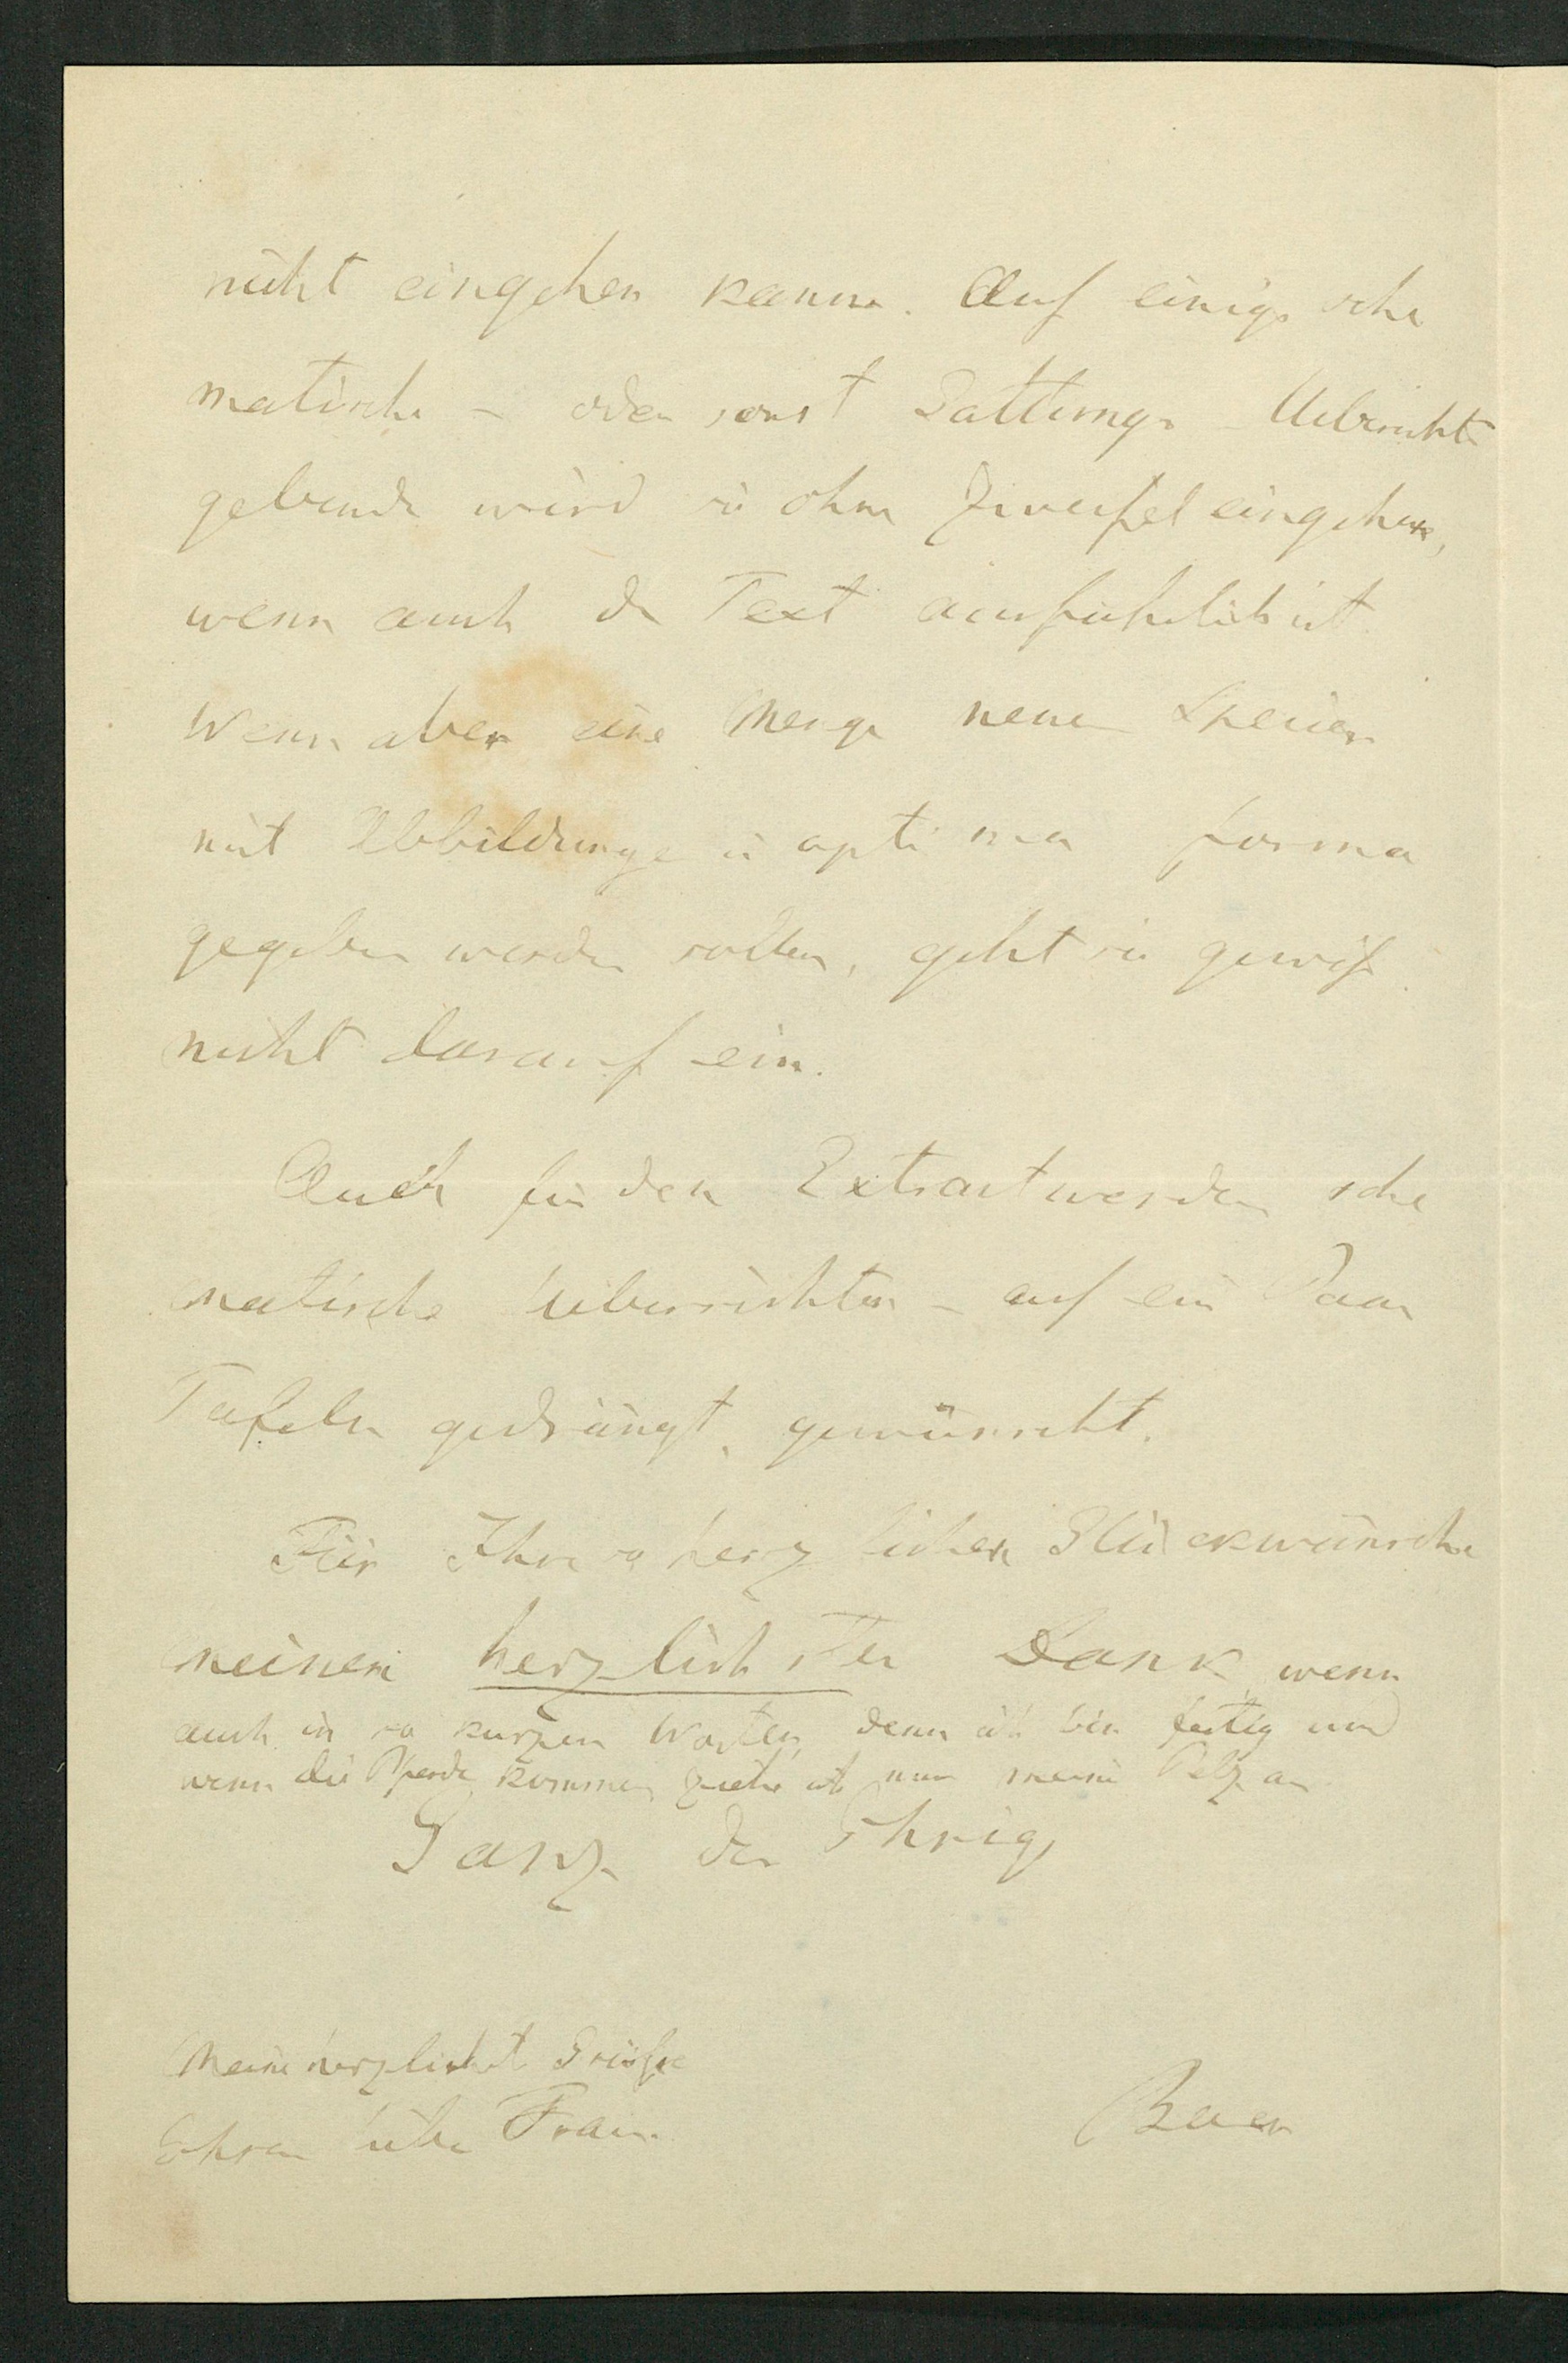 nicht eingehen kann. Auf einige sche
matische – oder sonst Gattungs-Uebersicht
gebende wird sie ohne Zweifel eingehen,
wenn auch der Text ausführlich ist.
Wenn aber eine Menge neuer Species
mit Abbildungen in optima forma
gegeben werden sollen, geht sie gewiß
nicht darauf ein.
Auch für den Extract werden sche
matische Uebersichten – auf ein Paar
Tafeln gedrängt, gewünscht.
Für Ihre so herzlichen Glückwünsche
meinen herzlichsten Dank, wenn
auch in so kurzen Worten, denn ich bin fertig und
wenn die Pferde kommen ziehe ich nur meinen Pelz an
Ganz der Ihrige
Meine herzlichst Grüße
Ihrer Frau.
Baer